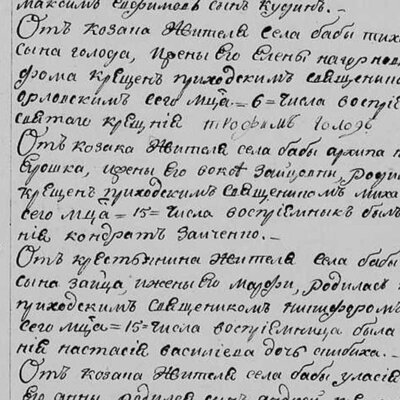 максимъ ефимовъ сынъ кудинъ. –
Отъ козака жителя села бабы тихо
сына голода, ижены его елены
фома крещенъ приходскимъ священико
орловскимъ сего мца = 6 = числа воспріе
святаго крещнія трофимъ голодъ
Отъ козака жителя села бабы архипа
ерошка, ижены его роди
крещенъ приходскимъ священикомъ миха
сего мца = 15 = числа воспріемникъ былъ
нія кондратъ заиченко. –
Отъ крестьянина жителя села бабы
сына зайца, ижены его марфи, родилась
приходскимъ священикомъ никифоромъ
сего мца = 15 = числа воспріемница была
нія настасія василіева дочь –
Отъ козака жителя села бабы уласія
его анны родился сынъ андрей